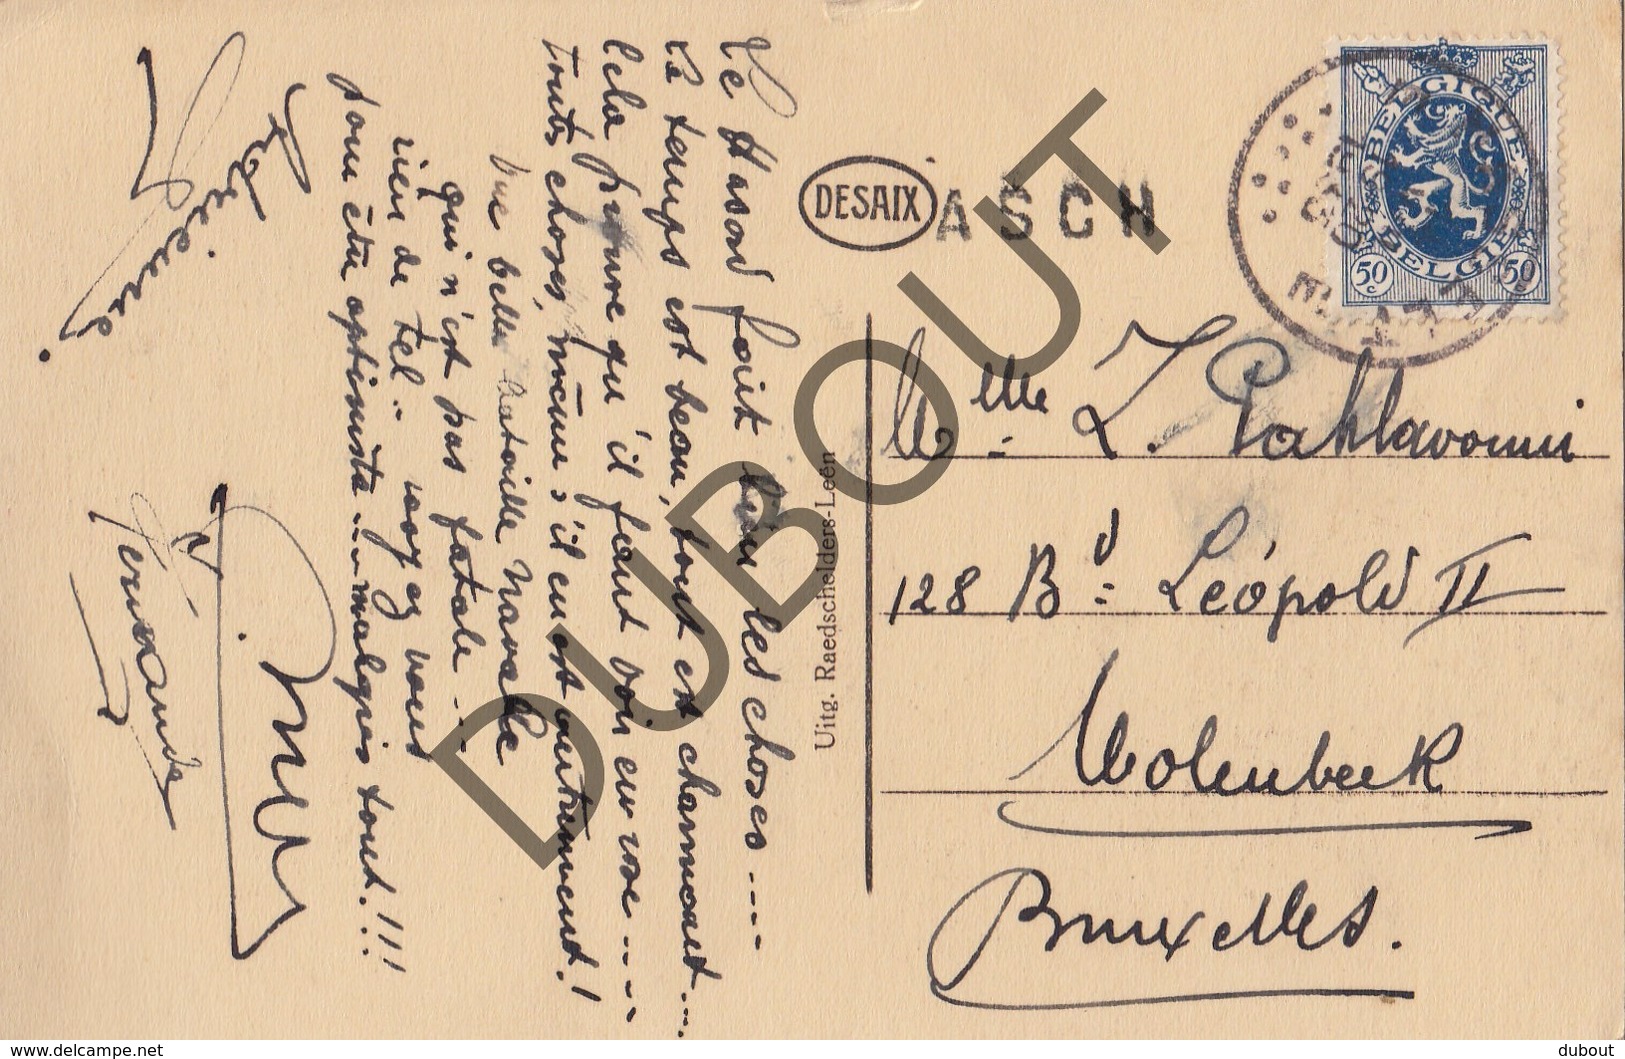 Le Hasard fait bien les choses....
Le temps est beau, tout est charmant...
Cela prouve qu'il faut voir en rose.....
toutes choses, même s'il en est autrement!
Une belle bataille navale
qui n'est pas fatale...
rien de tel.. voyez vous
pour être optimiste... malgré tout.!!!
Fernande
DESAIX
ASCH
Uitg. Raedschelders-Leën
BELGIQUE
BELGIE
50 c
50 c
Melle Z. Pahlavouni
128 Bd: Léopold II
Molenbeek
Bruxelles.
DUBOUT
www.delcampe.net
dubout